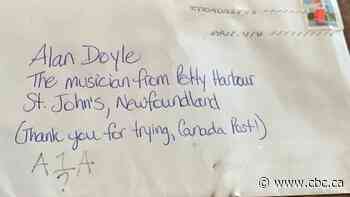 Alan Doyle
The musician from Petty Harbour
St. John's, Newfoundland
(Thank you for trying, Canada Post!)
A 1 A
?
www.cbc.ca